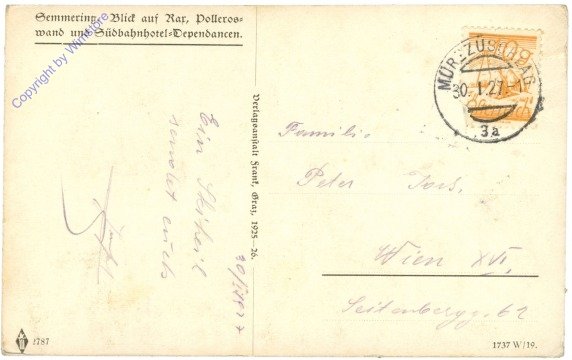 Semmering, Blick auf Rax, Polleros-
wand und Südbahnhotel-Dependancen.
Copyright by WinStore
Ein Skiheil
sendet euch
30/I 1927
Verlagsanstalt Frank, Graz, 1925-26.
MÜRZZUSCHLAG
30.I.27
3a
Familie
Peter
Wien XVI.
Seitenbergg. 62
2787
1737 W/19.